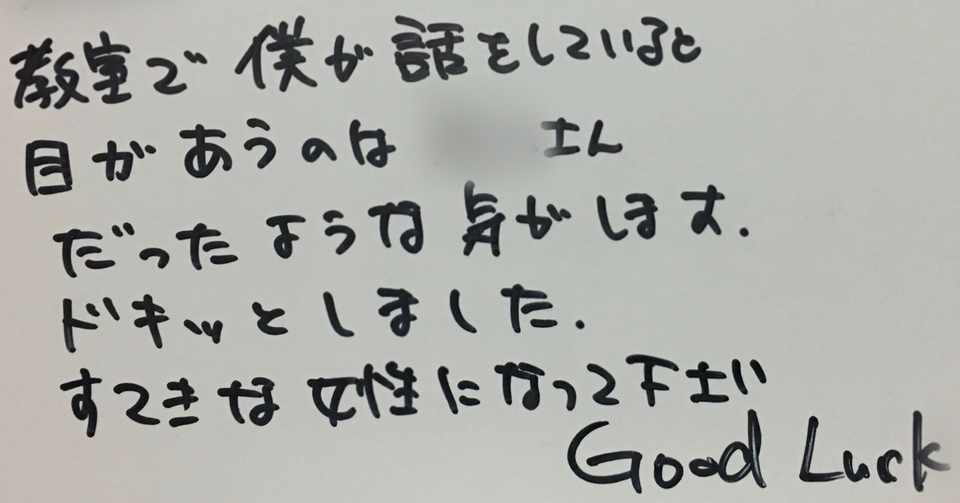 教室で僕が話をしていると
目があうのは さん
だったような気がします.
ドキッとしました.
すてきな女性になって下さい
Good Luck